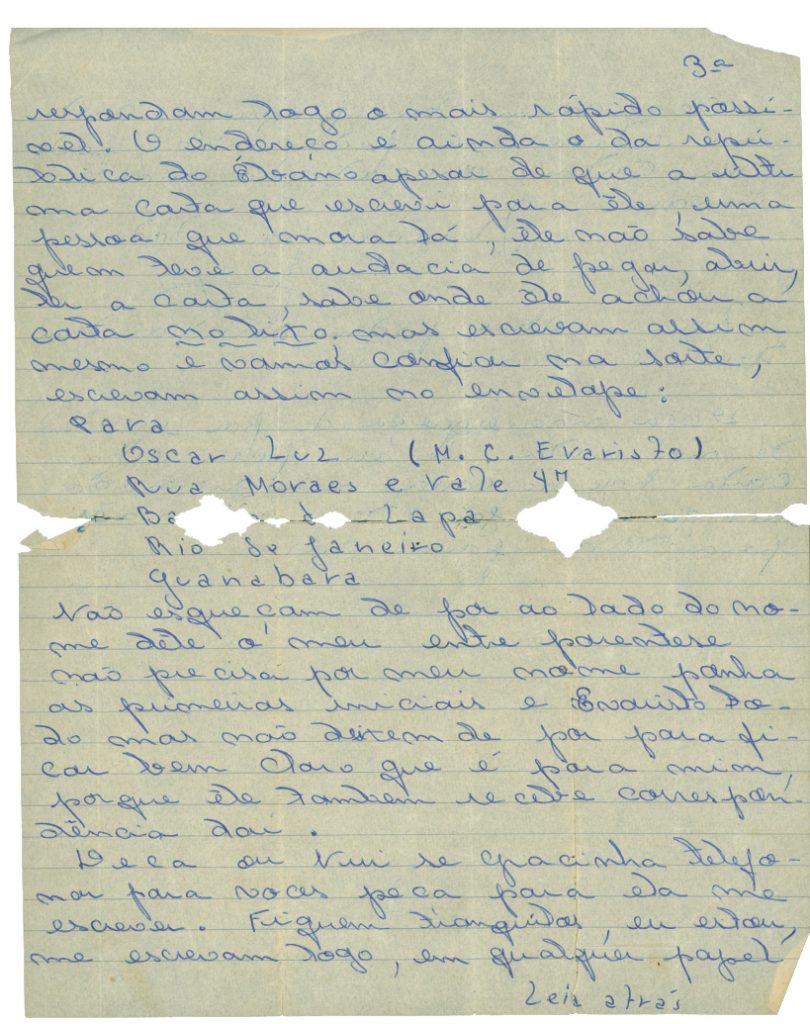 3ª
respondam logo o mais rápido possi-
vel. O endereço é ainda o da repú-
blica do Élvano apesar de que a ulti
ma carta que escrevi para êle, uma
pessoa que mora lá, êle não sabe
quem teve a audacia de pegar, abrir,
ler a carta, sabe onde êle achou a
carta no lixo. mas escrevam assim
mesmo e vamos confiar na sorte,
escrevam assim no envelape:
Para
Oscar Luz (M. C. Evaristo)
Rua Moraes e Vale 47
Ba Lapa
Rio de Janeiro
Guanabara
Não esqueçam de por ao lado do no-
me dêle o meu entre parentese
não precisa por meu nome ponha
as primeiras iniciais e Evaristo to-
do mas não deixem de por para fi-
car bem claro que é para mim,
porque êle tambem recebe correspon-
dência daí.
Deca ou Nui se Gracinha telefo-
nar para voces peca para ela me
escrever. Fiquem tranquilos, eu estou,
me escrevam logo, em qualquer papel
Leia atrás